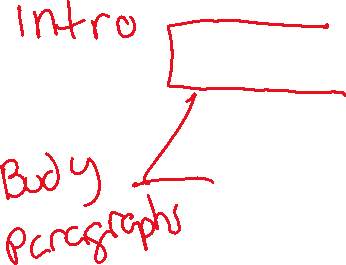 Intro
Body
Paragraphs